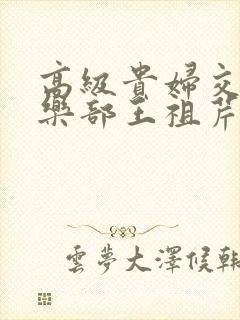 高級貴婦交
樂部王祖芹
雲夢大澤候韓